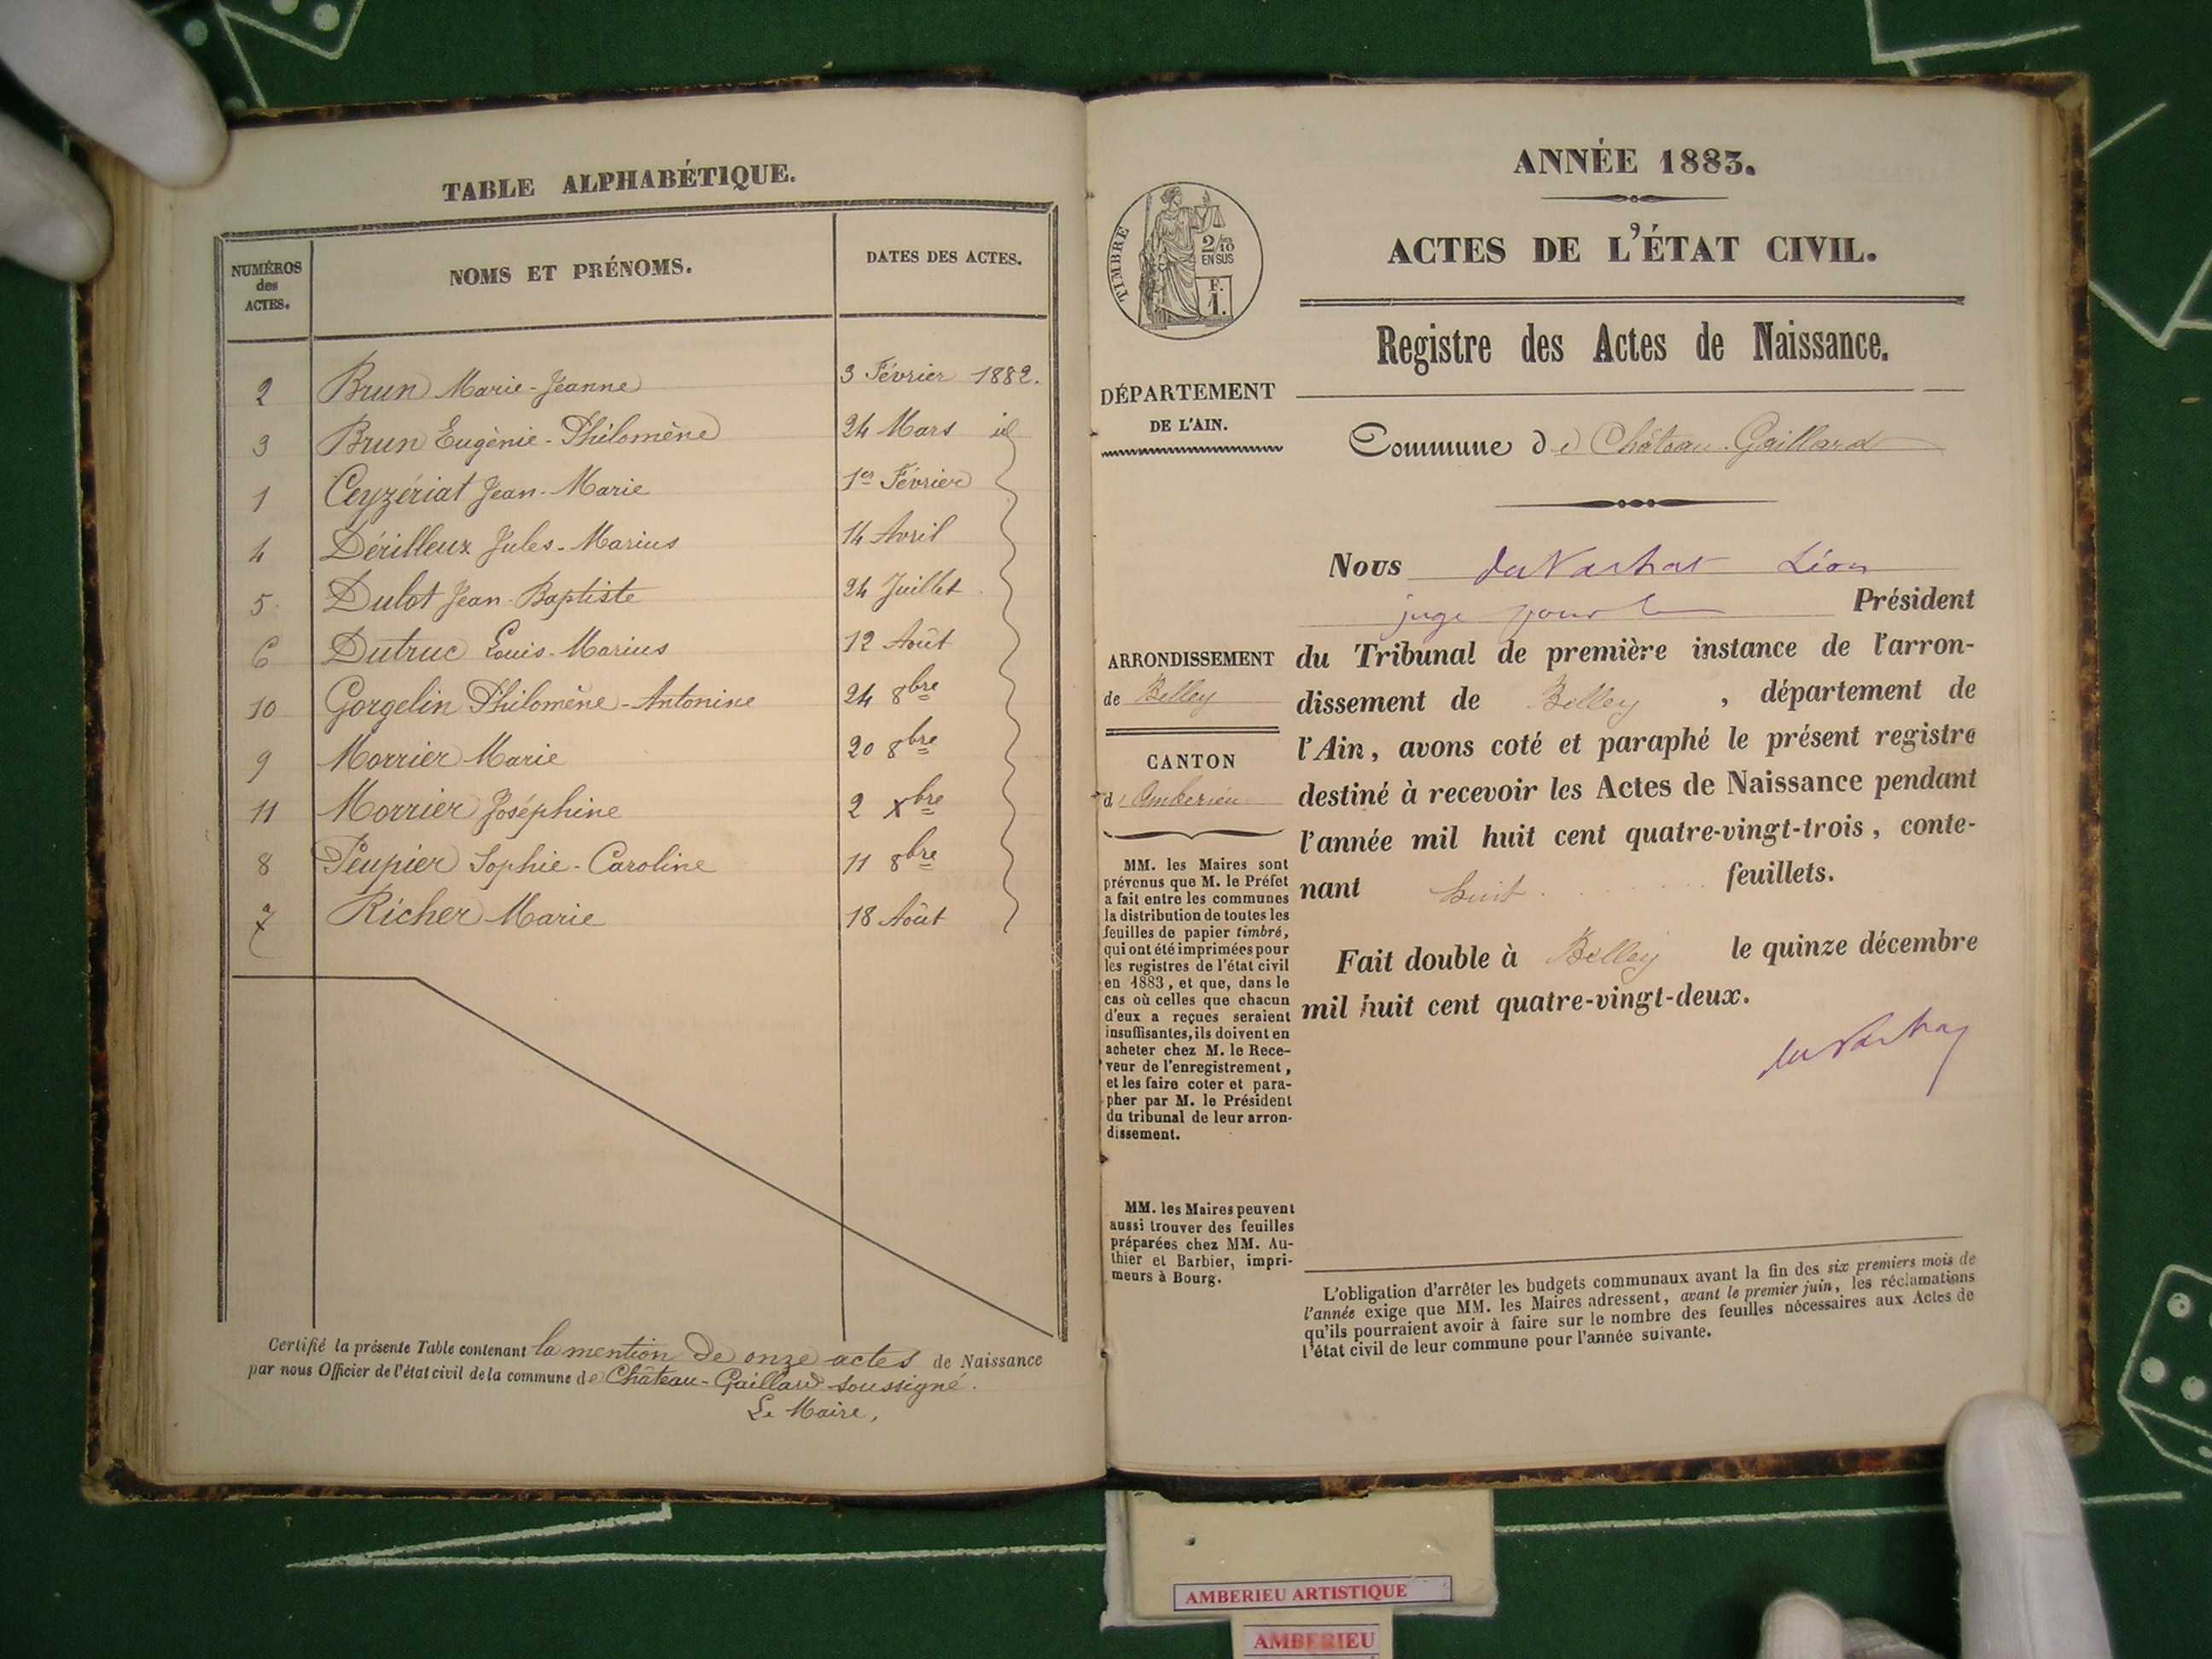 TABLE ALPHABÉTIQUE.
NUMÉROS des ACTES.
NOMS ET PRÉNOMS.
DATES DES ACTES.
2 Brun Marie-Jeanne 3 Février 1882.
3 Brun Eugènie-Philomène 24 Mars id
1 Ceyzériat Jean-Marie 1er Février
4 Dérilleux Jules-Marius 14 Avril
5 Dulot Jean-Baptiste 24 Juillet
6 Dutruc Louis-Marius 12 Août
10 Gorgelin Philomène-Antonine 24 8bre
9 Morrier Marie 20 8bre
11 Morrier Joséphine 2 Xbre
8 Peupier Sophie-Caroline 11 8bre
7 Richer Marie 18 Août
Certifié la présente Table contenant la mention de onze actes de Naissance
par nous Officier de l'état civil de la commune de Château-Gaillard soussigné.
Le Maire,
TIMBRE
2/10
EN SUS
F.
1.
DÉPARTEMENT
DE L'AIN.
ARRONDISSEMENT
de Belley
CANTON
d'Ambérieu
MM. les Maires sont
prévenus que M. le Préfet
a fait entre les communes
la distribution de toutes les
feuilles de papier timbré,
qui ont été imprimées pour
les registres de l'état civil
en 1883, et que, dans le
cas où celles que chacun
d'eux a reçues seraient
insuffisantes, ils doivent en
acheter chez M. le Rece-
veur de l'enregistrement,
et les faire coter et para-
pher par M. le Président
du tribunal de leur arron-
dissement.
MM. les Maires peuvent
aussi trouver des feuilles
préparées chez MM. Au-
thier et Barbier, impri-
meurs à Bourg.
ANNÉE 1883.
ACTES DE L'ÉTAT CIVIL.
Registre des Actes de Naissance.
Commune de Château-Gaillard
Nous Léon
juge pour le Président
du Tribunal de première instance de l'arron-
dissement de Belley, département de
l'Ain, avons coté et paraphé le présent registre
destiné à recevoir les Actes de Naissance pendant
l'année mil huit cent quatre-vingt-trois, conte-
nant huit feuillets.
Fait double à Belley le quinze décembre
mil huit cent quatre-vingt-deux.
L'obligation d'arrêter les budgets communaux avant la fin des six premiers mois de
l'année exige que MM. les Maires adressent, avant le premier juin, les réclamations
qu'ils pourraient avoir à faire sur le nombre des feuilles nécessaires aux Actes de
l'état civil de leur commune pour l'année suivante.
AMBERIEU ARTISTIQUE
AMBERIEU